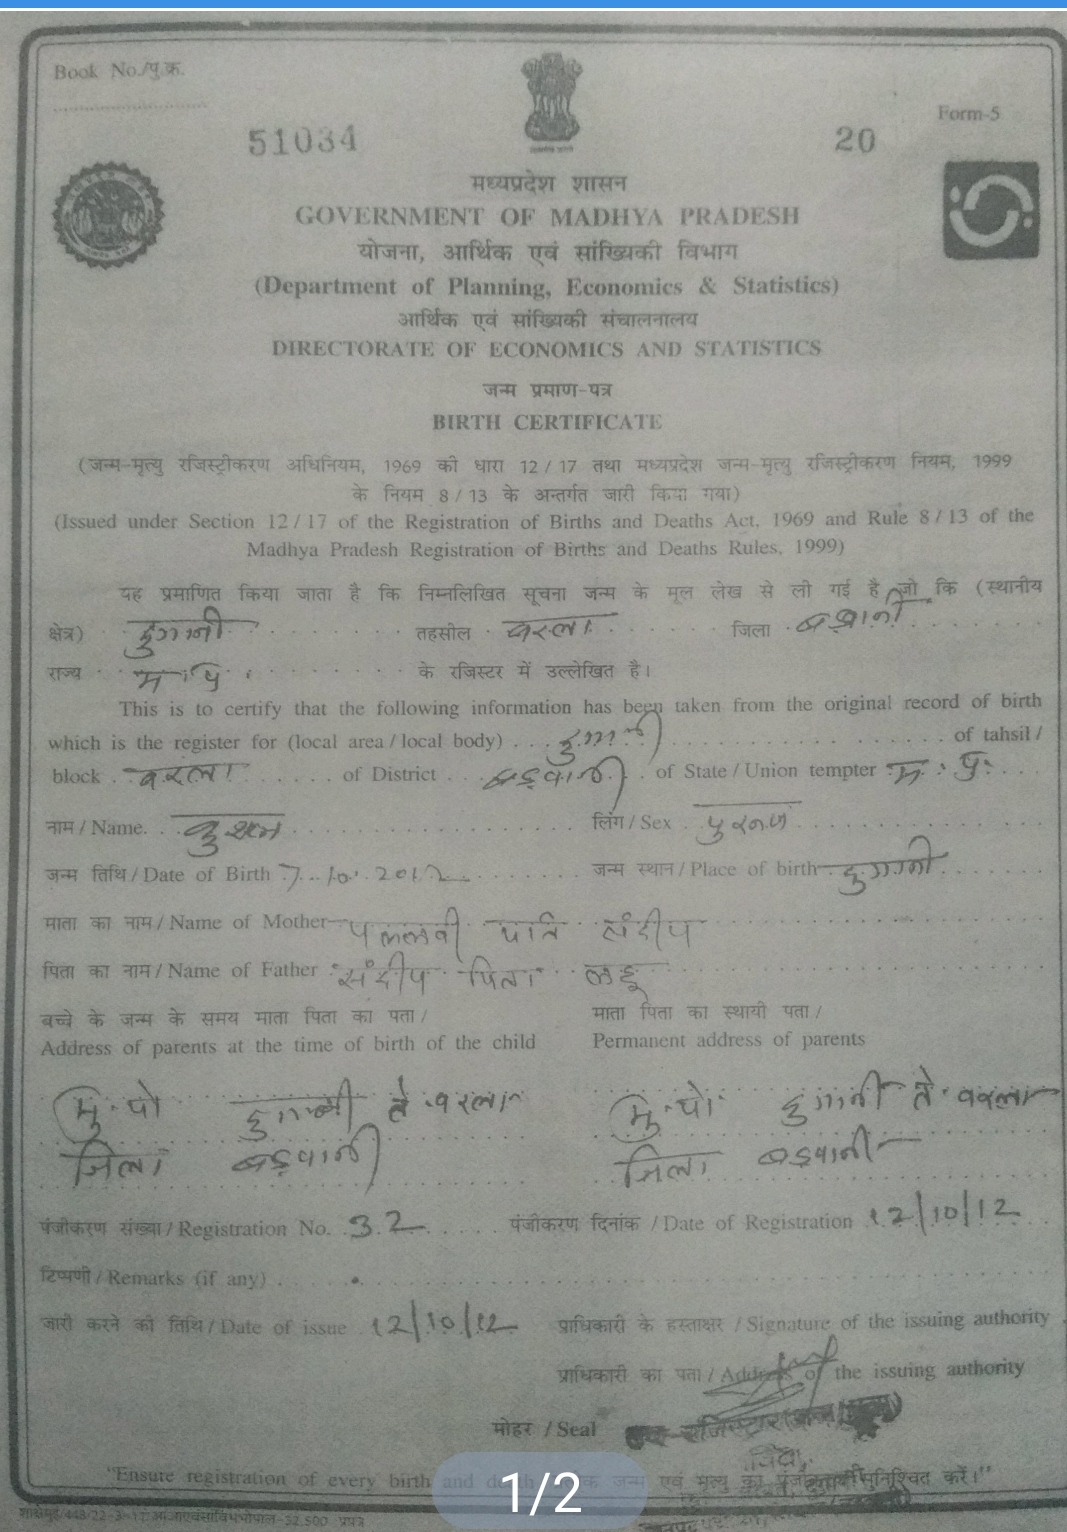 Book No./पु.क्र.
Form-5
51034
20
मध्यप्रदेश शासन
GOVERNMENT OF MADHYA PRADESH
योजना, आर्थिक एवं सांख्यिकी विभाग
(Department of Planning, Economics & Statistics)
आर्थिक एवं सांख्यिकी संचालनालय
DIRECTORATE OF ECONOMICS AND STATISTICS
जन्म प्रमाण-पत्र
BIRTH CERTIFICATE
(जन्म-मृत्यु रजिस्ट्रीकरण अधिनियम, 1969 की धारा 12/17 तथा मध्यप्रदेश जन्म-मृत्यु रजिस्ट्रीकरण नियम, 1999
के नियम 8/13 के अन्तर्गत जारी किया गया)
(Issued under Section 12/17 of the Registration of Births and Deaths Act, 1969 and Rule 8/13 of the
Madhya Pradesh Registration of Births and Deaths Rules, 1999)
यह प्रमाणित किया जाता है कि निम्नलिखित सूचना जन्म के मूल लेख से ली गई है जो कि (स्थानीय
क्षेत्र) दुगानी तहसील वरला जिला बड़वानी
राज्य म.प्र. के रजिस्टर में उल्लेखित है।
This is to certify that the following information has been taken from the original record of birth
which is the register for (local area / local body) दुगानी of tahsil /
block वरला of District बड़वानी of State / Union tempter म.प्र.
नाम / Name. लिंग / Sex पुरूष
जन्म तिथि / Date of Birth 7.10.2012 जन्म स्थान / Place of birth दुगानी
माता का नाम / Name of Mother पल्लवी पति संदीप
पिता का नाम / Name of Father संदीप पिता
बच्चे के जन्म के समय माता पिता का पता / माता पिता का स्थायी पता /
Address of parents at the time of birth of the child Permanent address of parents
मु.पो दुगानी ते.वरला मु.पो. दुगानी ते.वरला
जिला बड़वानी जिला बड़वानी
पंजीकरण संख्या / Registration No. 32 पंजीकरण दिनांक / Date of Registration 12/10/12
टिप्पणी / Remarks (if any)
जारी करने की तिथि / Date of issue 12/10/12 प्राधिकारी के हस्ताक्षर / Signature of the issuing authority
प्राधिकारी का पता / Address of the issuing authority
मोहर / Seal
"Ensure registration of every birth and जन्म एवं मृत्यु का सुनिश्चित करें।"
1/2